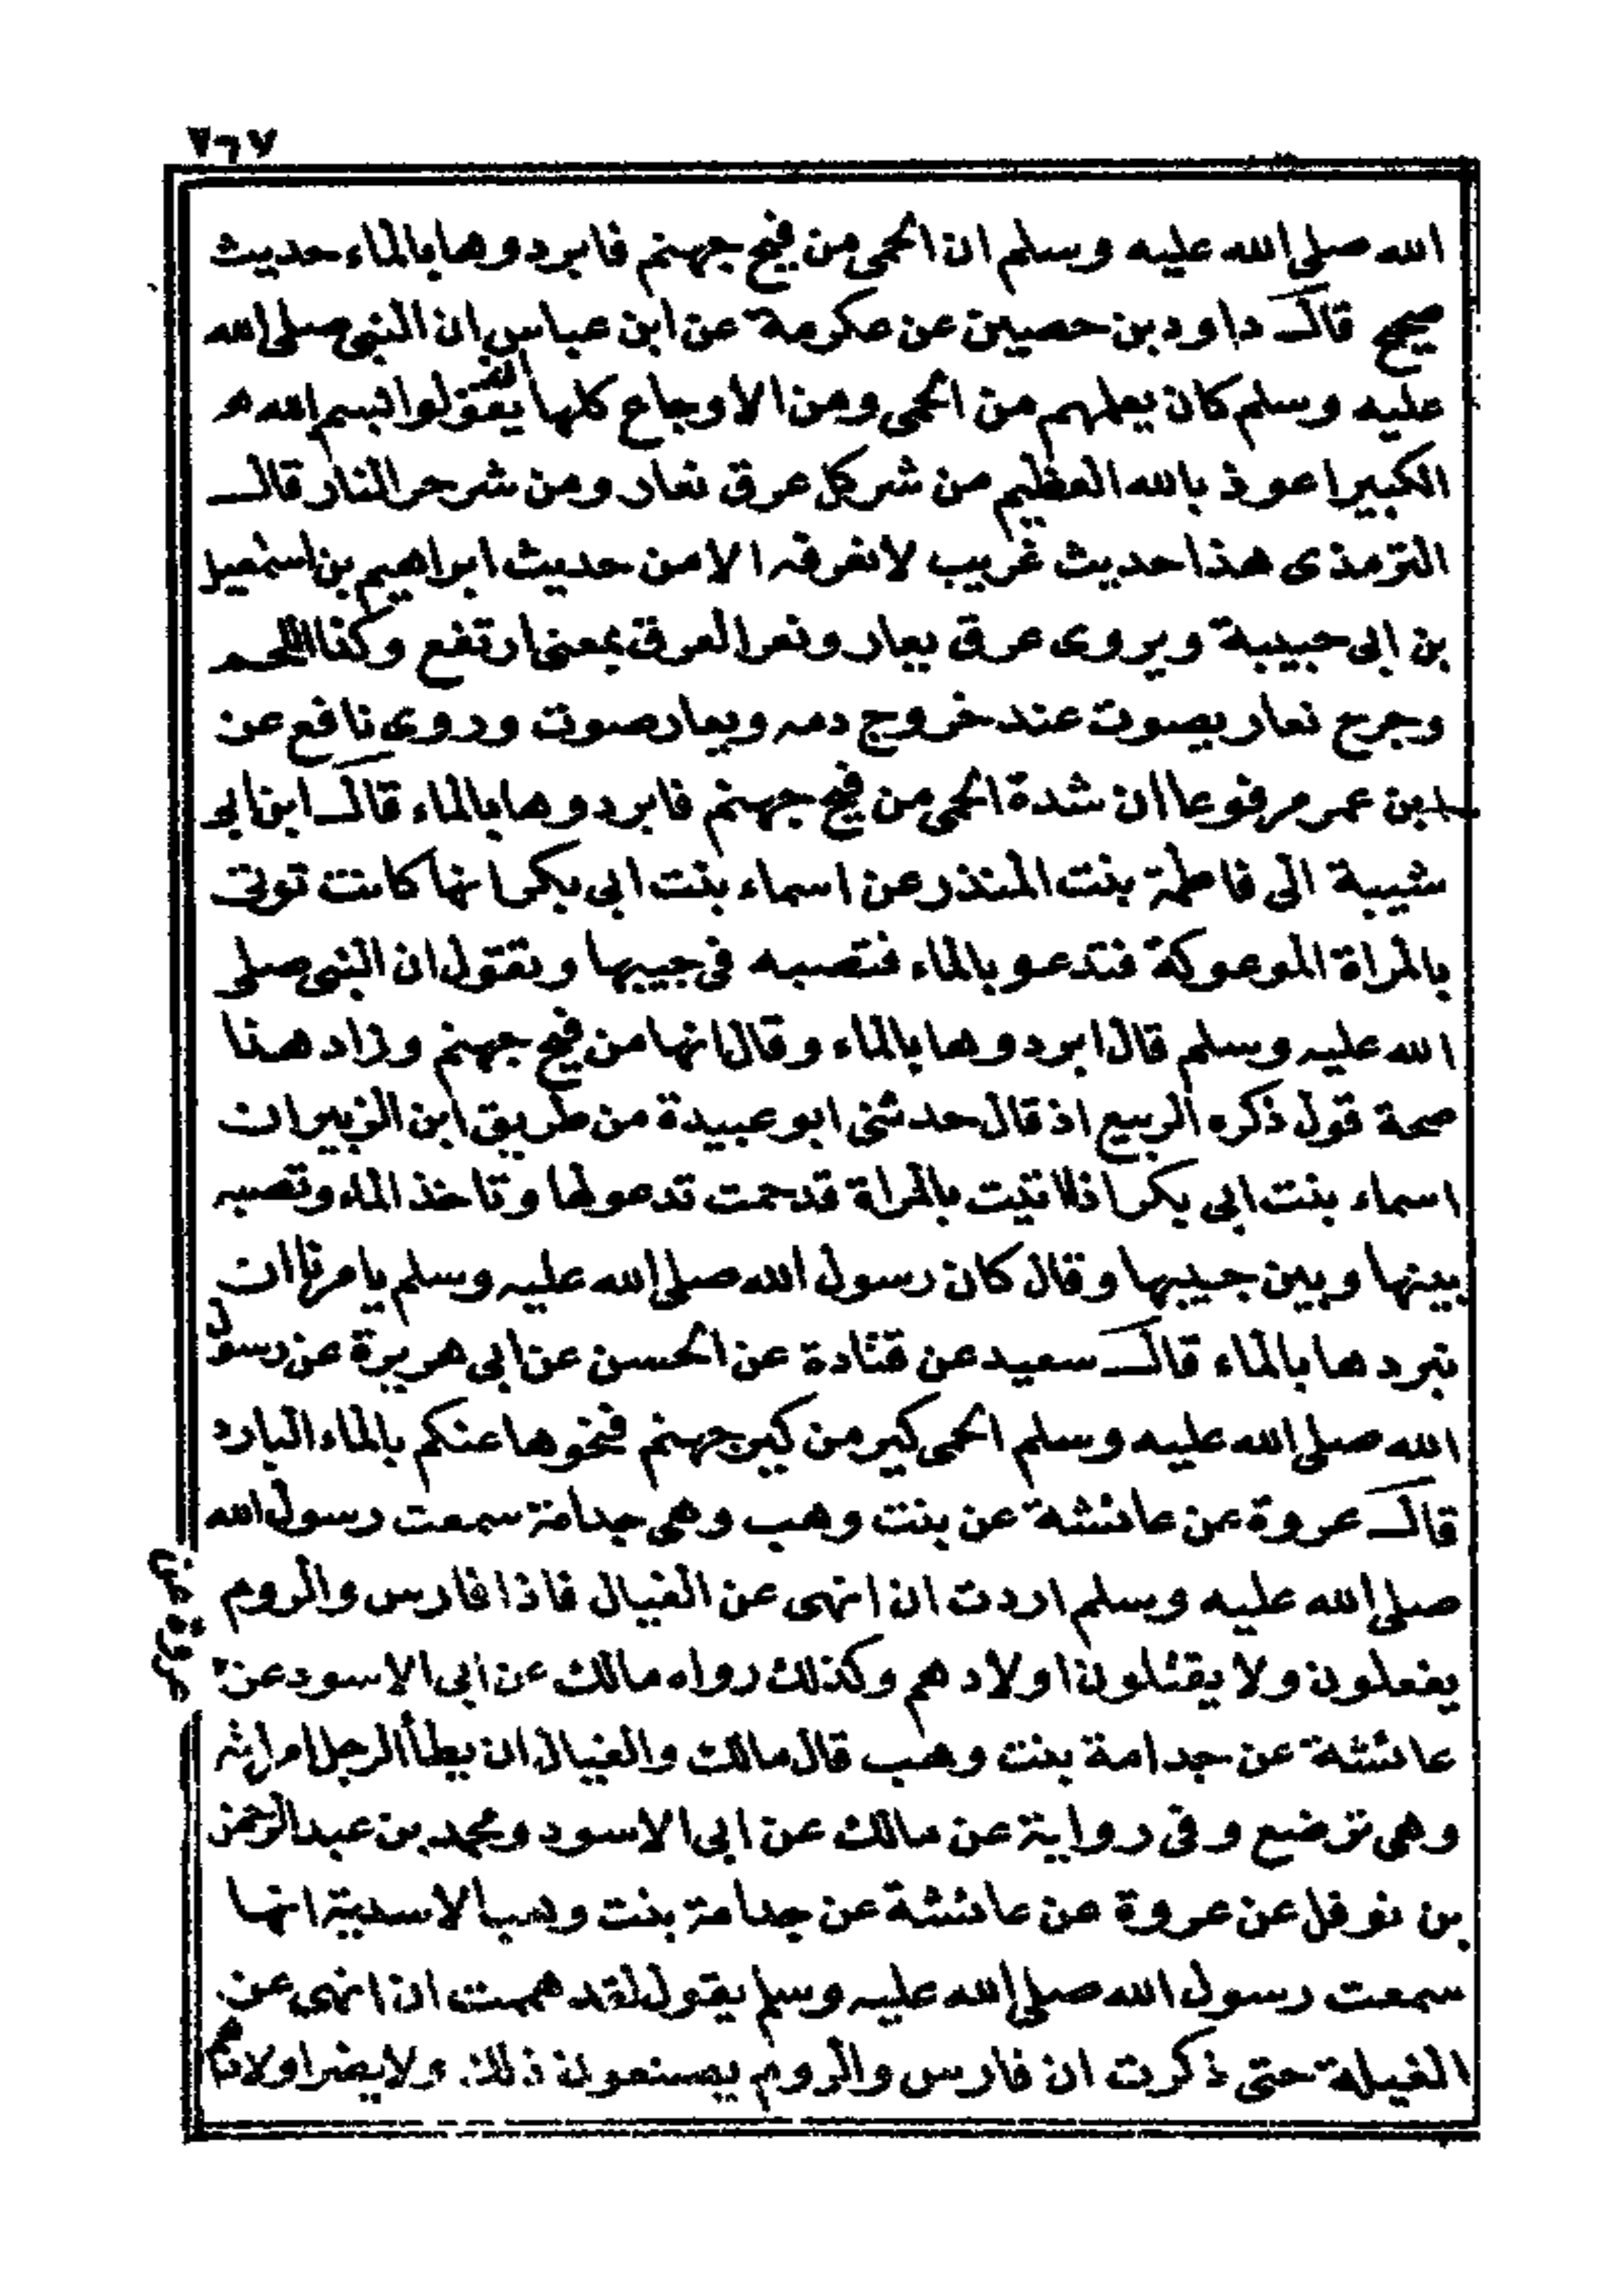 ٢٦٧
الله صلى الله عليه وسلم ان الحمى من فيح جهنم فابردوها بالماء حديث
صحيح قال داود بن حصين عن عكرمة عن ابن عباس ان النبى صلى الله
عليه وسلم كان يعلمهم من الحمى ومن الاوجاع كلها يقولوا بسم الله
الكبير اعوذ بالله العظيم من شر كل عرق نعار ومن شر حر النار قال
الترمذى هذا حديث غريب لانعرفه الا من حديث ابراهيم بن اسمعيل
بن ابى حبيبة ويروى عرق يعار ونعر العرق بمعنى ارتفع وكذا اللحم
وجرح نعار يصوت عند خروج دمه ويعار صوت وروى نافع عن
بن عمر مرفوعا ان شدة الحمى من فيح جهنم فابردوها بالماء قال ابن ابى
شيبة الى فاطمة بنت المنذر عن اسماء بنت ابى بكر انها كانت توتى
بالمراة الموعوكة فتدعو بالماء فتصبه فى جيبها وتقول ان النبى صلى
الله عليه وسلم قال ابردوها بالماء وقال انها من فيح جهنم وزاد هنا
صحة قول ذكره الربيع اذ قال حدثنى ابو عبيدة من طريق ابن الزبير ان
اسماء بنت ابى بكر اذا اتيت بالمراة قد حمت تدعو لها وتاخذ الماء وتصبه
بينها وبين جيبها وقال كان رسول الله صلى الله عليه وسلم يامرنا ان
نبردها بالماء قال سعيد عن قتادة عن الحسن عن ابى هريرة عن رسول
الله صلى الله عليه وسلم الحمى كير من كير جهنم فنحوها عنكم بالماء البارد
قال عروة عن عائشة عن بنت وهب وهى جدامة سمعت رسول الله
صلى الله عليه وسلم اردت ان انهى عن الغيال فاذا فارس والروم
يفعلون ولا يقتلون اولادهم وكذلك رواه مالك عن ابى الاسود عن
عروة عن
عائشة عن جدامة بنت وهب قال مالك والغيال ان يطأ الرجل امراته
وهى ترضع وفى رواية عن مالك عن ابى الاسود ومحمد بن عبد الرحمن
بن نوفل عن عروة عن عائشة عن جدامة بنت وهب الاسدية انها
سمعت رسول الله صلى الله عليه وسلم يقول لقد هممت ان انهى عن
الغيلة حتى ذكرت ان فارس والروم يصنعون ذلك ولا يضر اولادهم